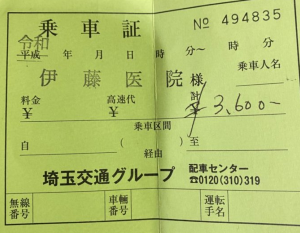 乗車証 № 494835
令和
平成 年 月 日 時 分〜 時 分
伊藤医院様 乗車人名
料金 ¥ 高速代 ¥ 計 ¥3,600-
乗車区間
自 ( ) 至
経由
埼玉交通グループ 配車センター ☎0120(310)319
無線番号 車輛番号 運転手名